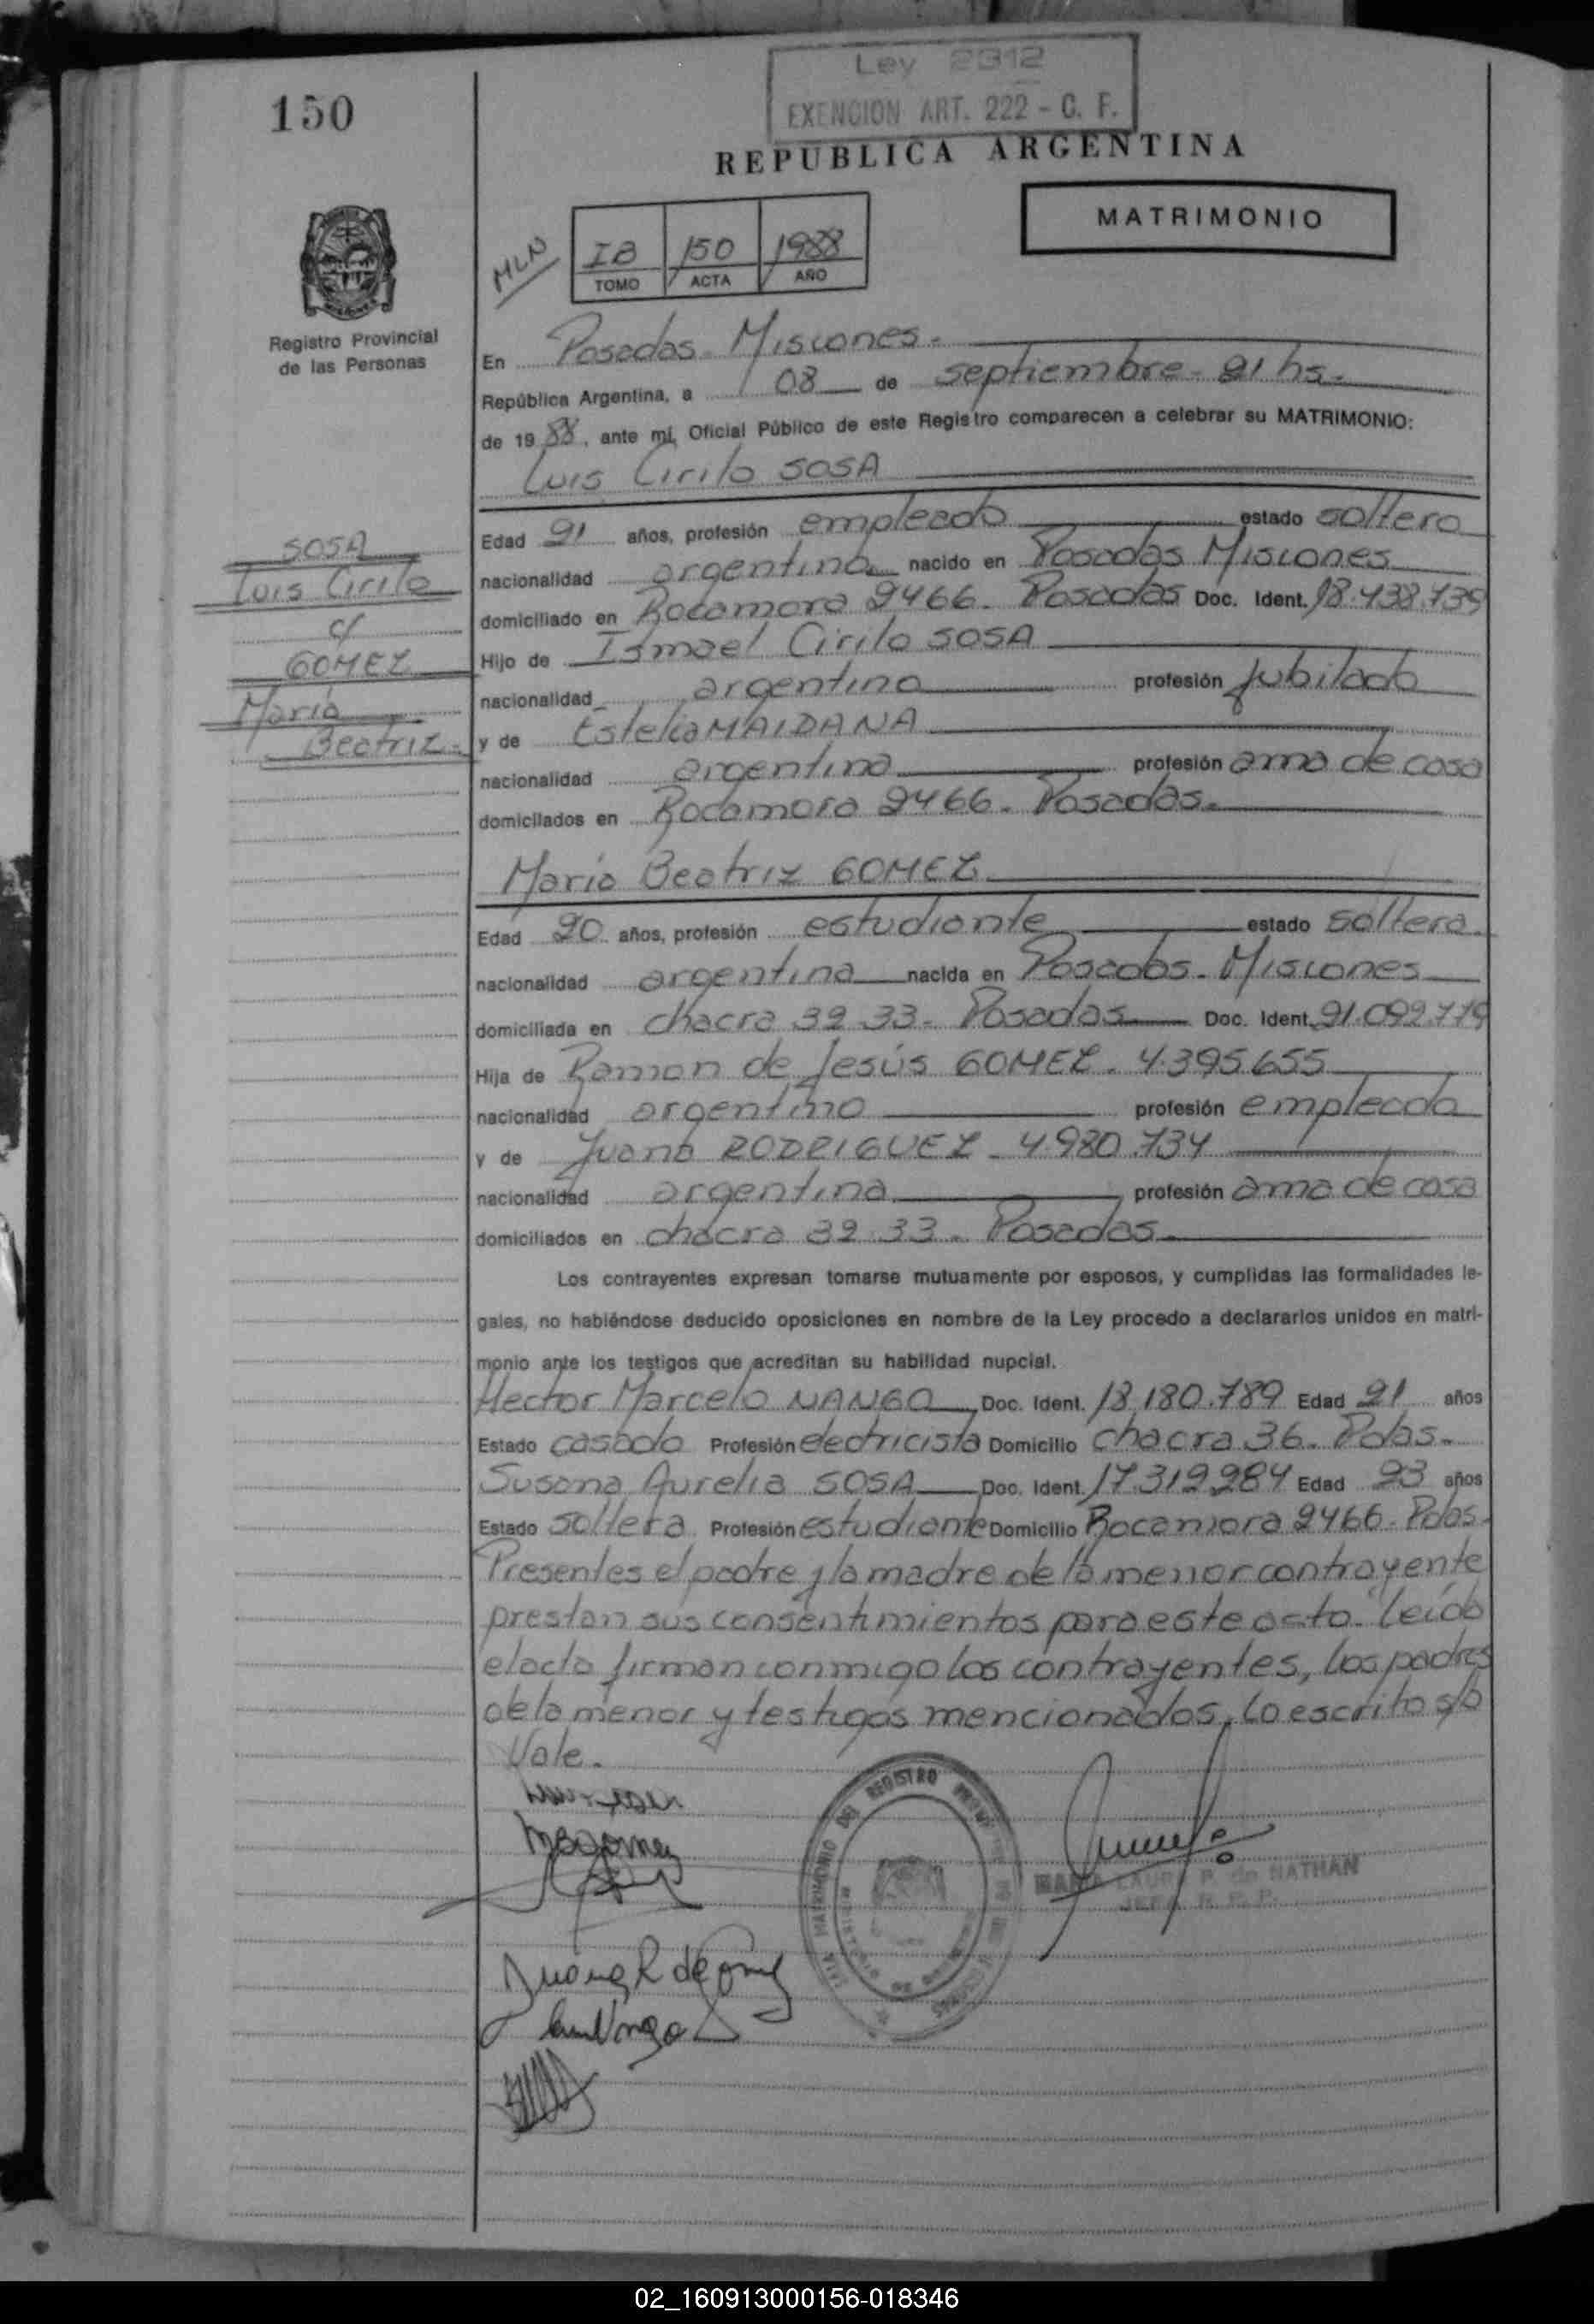 Ley 2312
EXENCION ART. 222 - C. F.
150
REPUBLICA ARGENTINA
MATRIMONIO
MLN
IB 150 1988
TOMO ACTA AÑO
Registro Provincial
de las Personas
En Posadas - Misiones -
República Argentina, a 08 de septiembre - 21 hs.
de 1988, ante mí, Oficial Público de este Registro comparecen a celebrar su MATRIMONIO:
Luis Cirilo SOSA
SOSA
Luis Cirilo
c/
GOMEZ
María
Beatriz -
Edad 21 años, profesión empleado estado soltero
nacionalidad argentina nacido en Posadas Misiones
domiciliado en Rocamora 2466 - Posadas Doc. Ident. 18.438.739
Hijo de Ismael Cirilo SOSA
nacionalidad argentina profesión jubilado
y de Estelia MAIDANA
nacionalidad argentina profesión ama de casa
domiciliados en Rocamora 2466 - Posadas.
María Beatriz GOMEZ
Edad 20 años, profesión estudiante estado soltera
nacionalidad argentina nacida en Posadas - Misiones
domiciliada en chacra 32 33 - Posadas Doc. Ident. 21.092.779
Hija de Ramon de Jesús GOMEZ - 4.395.655
nacionalidad argentino profesión empleado
y de Juana RODRIGUEZ - 4.980.734
nacionalidad argentina profesión ama de casa
domiciliados en chacra 32 33 - Posadas.
Los contrayentes expresan tomarse mutuamente por esposos, y cumplidas las formalidades le-
gales, no habiéndose deducido oposiciones en nombre de la Ley procedo a declararlos unidos en matri-
monio ante los testigos que acreditan su habilidad nupcial.
Hector Marcelo NANGO Doc. Ident. 18.180.789 Edad 21 años
Estado casado Profesión electricista Domicilio chacra 36 - Pdas.
Susana Aurelia SOSA Doc. Ident. 17.312.284 Edad 23 años
Estado soltera Profesión estudiante Domicilio Rocamora 2466 - Pdas.
Presentes el padre y la madre de la menor contrayente
prestan sus consentimientos para este acto. Leído
el acta firman conmigo los contrayentes, los padres
de la menor y testigos mencionados, lo escrito s/b
Vale.
Juana R de Gomez
MARIA LAURA P. de NATHAN
JEFA R. P. P.
02_160913000156-018346